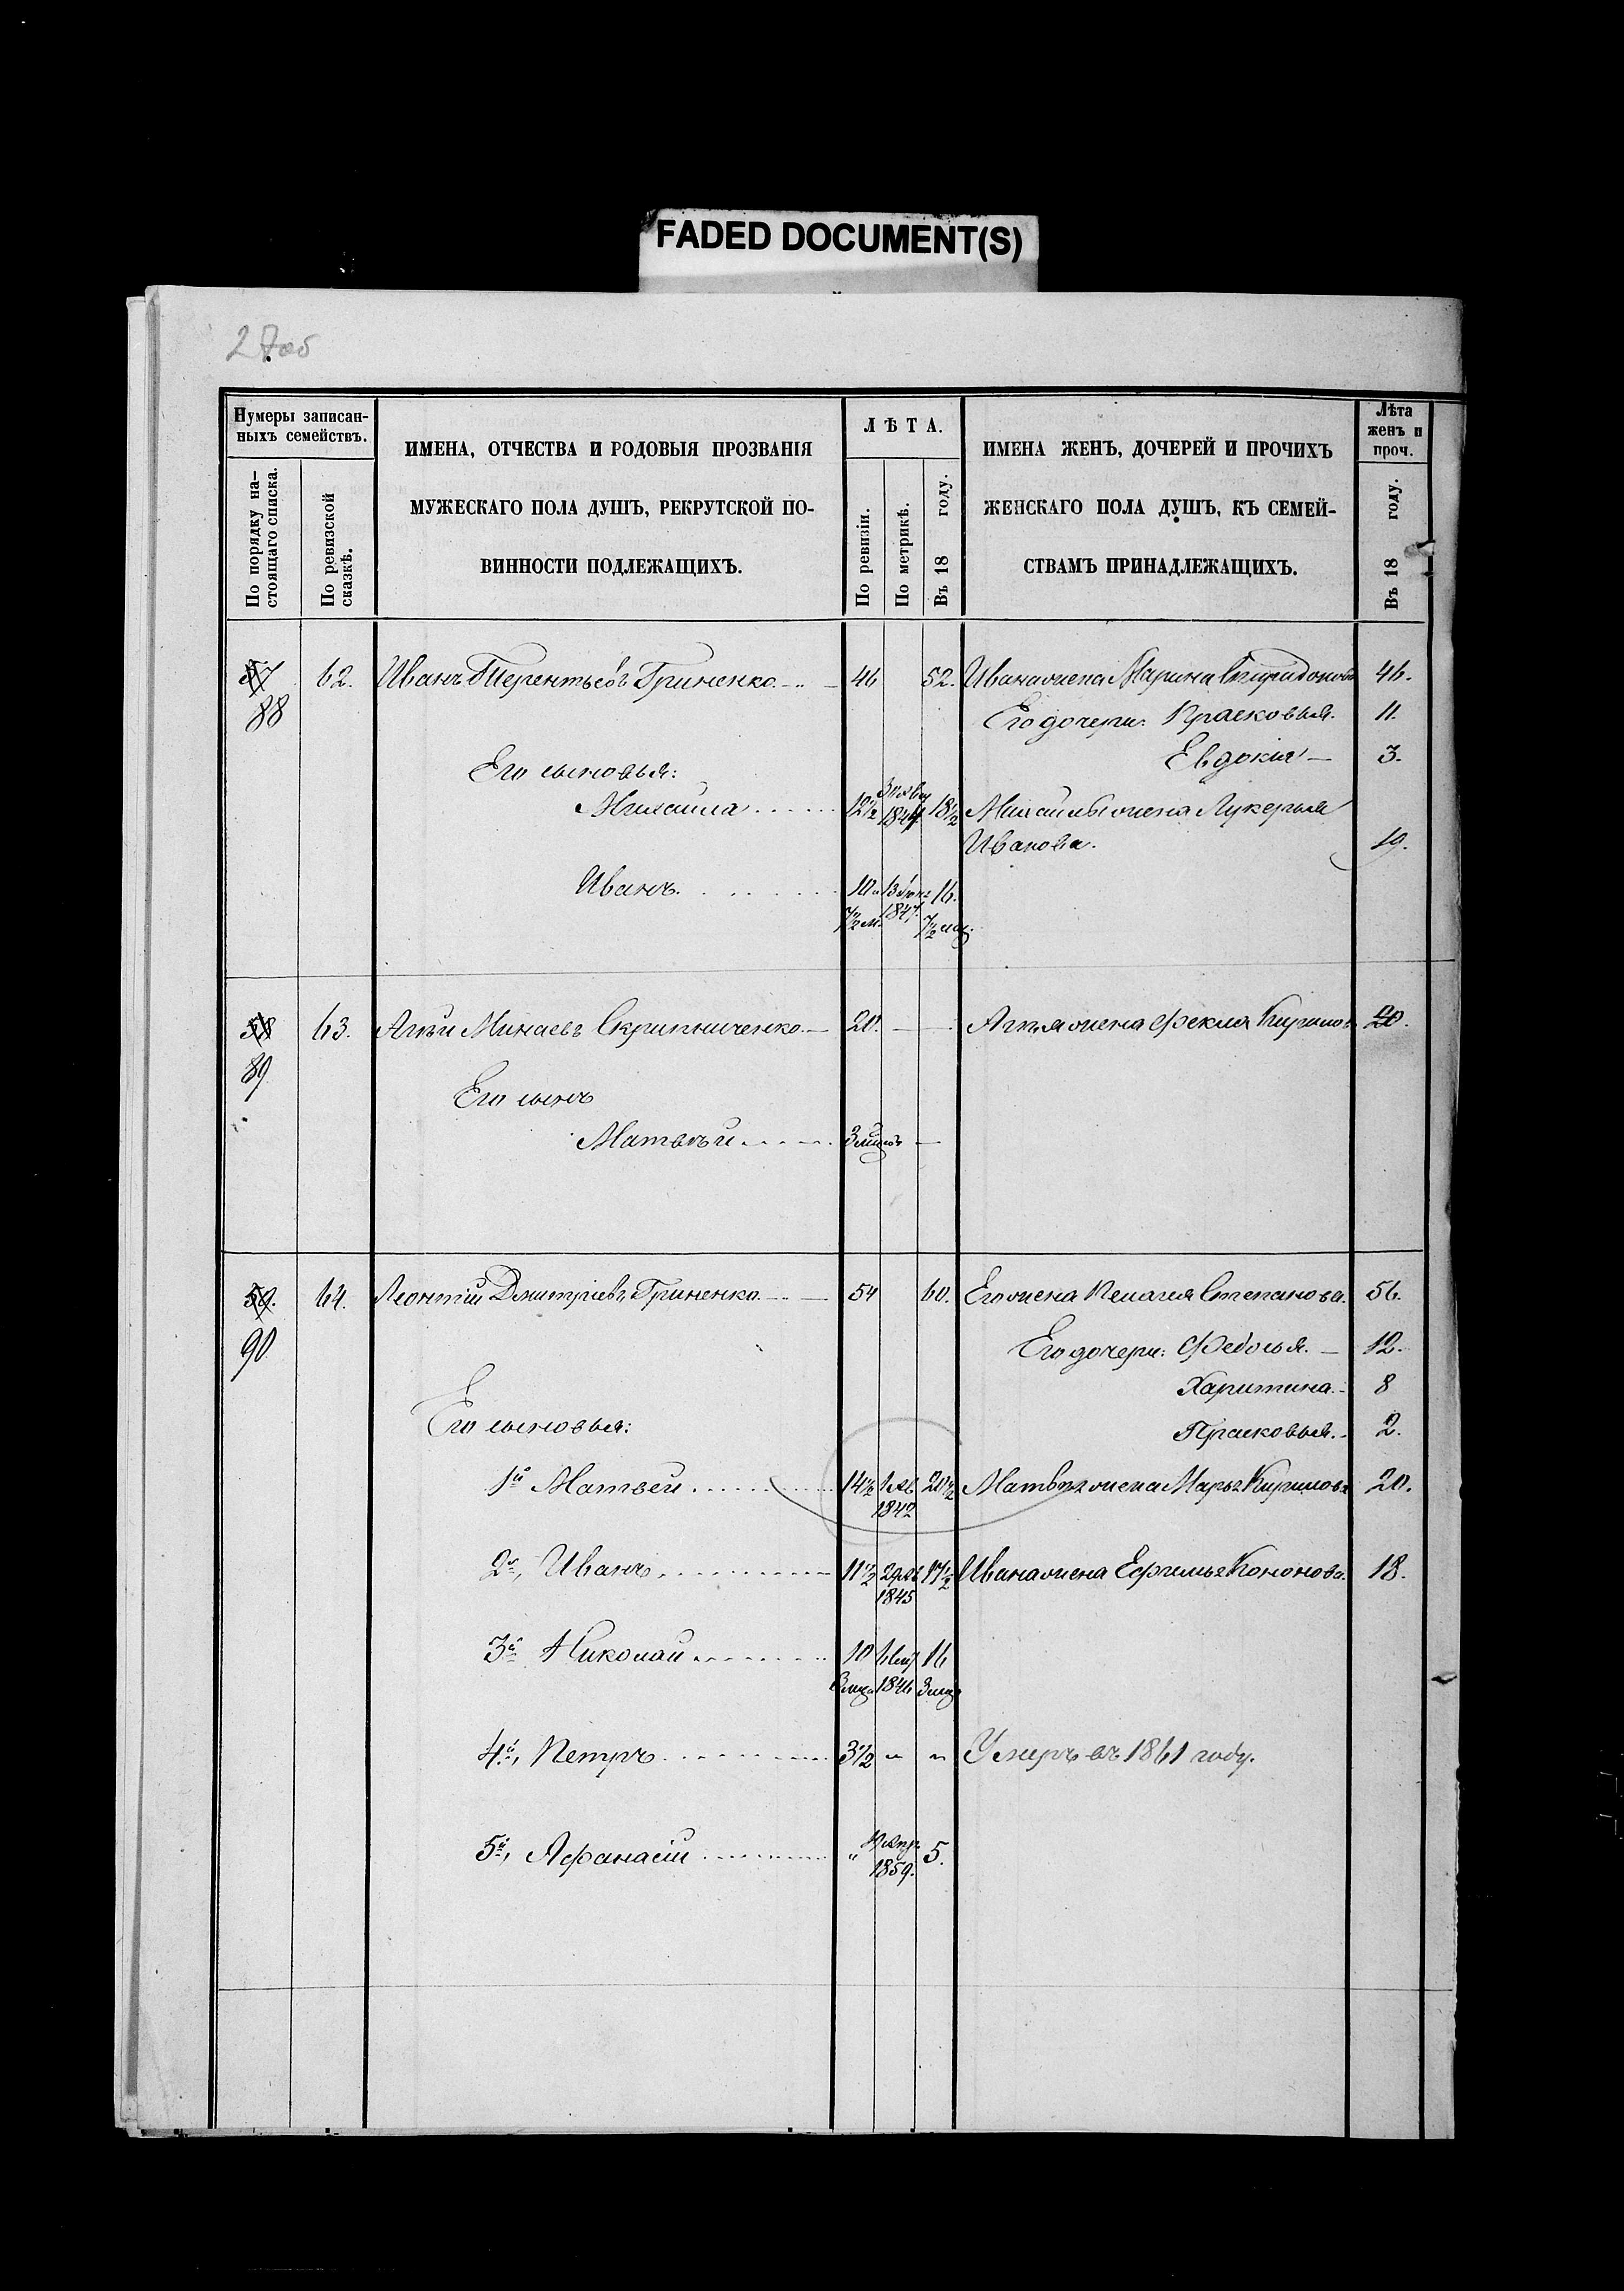 FADED DOCUMENT(S)
27об
Нумеры записан-
ныхъ семействъ.
По порядку на-
стоящаго списка.
По ревизской
сказкѣ.
ИМЕНА, ОТЧЕСТВА И РОДОВЫЯ ПРОЗВАНІЯ
МУЖЕСКАГО ПОЛА ДУШЪ, РЕКРУТСКОЙ ПО-
ВИННОСТИ ПОДЛЕЖАЩИХЪ.
ЛѢТА.
По ревизіи.
По метрикѣ.
Въ 18 году.
ИМЕНА ЖЕНЪ, ДОЧЕРЕЙ И ПРОЧИХЪ
ЖЕНСКАГО ПОЛА ДУШЪ, КЪ СЕМЕЙ-
СТВАМЪ ПРИНАДЛЕЖАЩИХЪ.
Лѣта
женъ и
проч.
Въ 18 году.
57 62. Иванъ Терентьевъ Гриненко 46 52. Ивана жена Марина Спиридонова 46.
88 Его дочери: Прасковья. 11.
Евдокія 3.
Его сыновья:
Михаила 12½ 1844 18½ Михаилы жена Лукерья
Иванова. 19.
Иванъ 10 и 13 1847. 16.
7½ м. 7½ мѣс.
58 63. Минаевъ Скрипниченко 20. жена Фекла 20.
89
Его сынъ
Матвѣй 3 мѣсяцъ
59. 64. Леонтій Дмитріевъ Гриненко 54 60. Его жена Пелагея Степанова. 56.
90 Его дочери: Федосья. 12.
Харитина. 8
Его сыновья: Прасковья. 2.
1й Матвей 14½ 1842 20½ Матвѣя жена Марья Кирилова 20.
2й, Иванъ 11½ 1845 17½ Ивана жена Ефимья Кононова. 18.
3й Николай 10 1846 16
3 мѣс
4й, Петръ 3½ " " Умеръ въ 1861 году.
5й, Афанасій " Апр. 1859. 5.